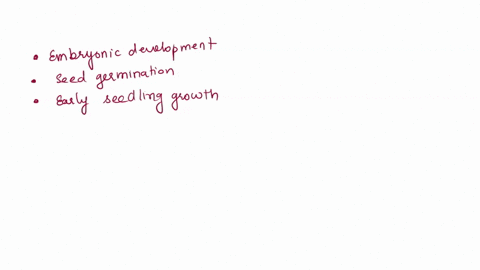 • Embryonic development
• Seed germination
• Early seedling growth